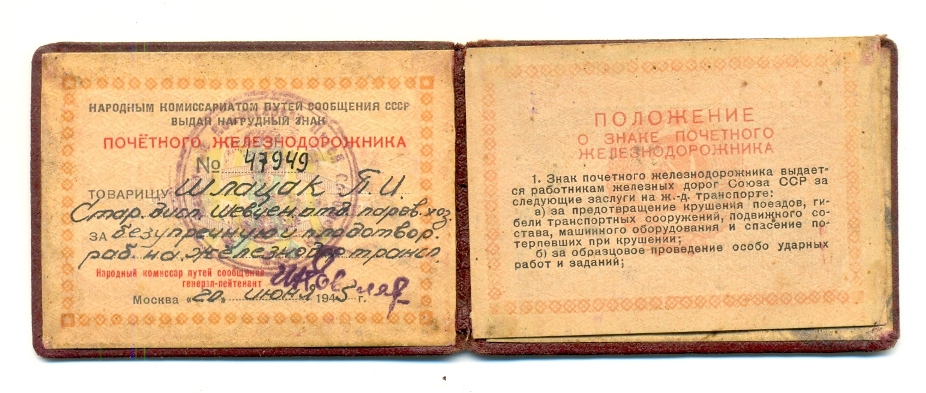 НАРОДНЫМ КОМИССАРИАТОМ ПУТЕЙ СООБЩЕНИЯ СССР
ВЫДАН НАГРУДНЫЙ ЗНАК
ПОЧЁТНОГО ЖЕЛЕЗНОДОРОЖНИКА
№ 47949
ТОВАРИЩУ Шлацак П.И.
Стар. дисп. Шевчен. отд. паров. хоз.
ЗА безупречную и плодотвор.
раб. на железнодор. трансп.
Народный комиссар путей сообщения
генерал-лейтенант
Москва „20" июня 1945 г.
ПОЛОЖЕНИЕ
О ЗНАКЕ ПОЧЕТНОГО
ЖЕЛЕЗНОДОРОЖНИКА
1. Знак почетного железнодорожника выдает-
ся работникам железных дорог Союза ССР за
следующие заслуги на ж.-д. транспорте:
а) за предотвращение крушения поездов, ги-
бели транспортных сооружений, подвижного со-
става, машинного оборудования и спасение по-
терпевших при крушении;
б) за образцовое проведение особо ударных
работ и заданий;